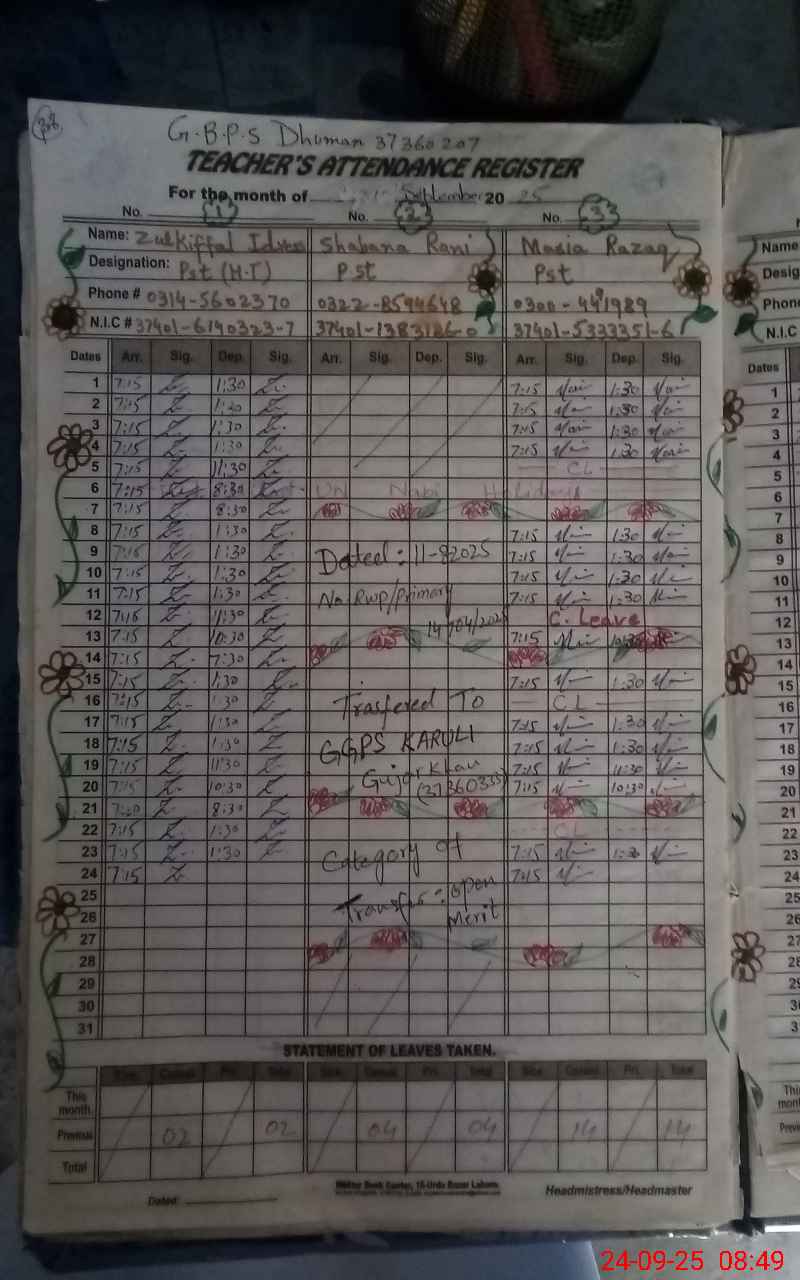 G.B.P.S Dhuman 37360207
TEACHER'S ATTENDANCE REGISTER
For the month of September 2025
No. 1 No. 2 No. 3
Name: Zulkiffal Idrees Shabana Rani Masia Razaq
Designation: Pst (H.T) Pst Pst
Phone # 0314-5602370 0322-8594648
N.I.C # 37401-6140323-7 37401-5333351-6
Dates Arr. Sig. Dep. Sig. Arr. Sig. Dep. Sig. Arr. Sig. Dep. Sig.
1 7:15 1:30 7:15 1:30
2 7:15 1:30 7:15 1:30
3 7:15 1:30 7:15 1:30
4 7:15 1:30 7:15 1:30
5 7:15 11:30 CL
6 7:15 8:30 Un Nabi Holidays
7 7:15 8:30
8 7:15 1:30 7:15 1:30
9 7:15 1:30 Dated: 11-82025 7:15 1:30
10 7:15 1:30 7:15 1:30
11 7:15 1:30 No: Rwp/Primary 7:15 1:30
12 7:15 11:30 C. Leave
13 7:15 10:30 7:15
14 7:15 7:30
15 7:15 1:30 7:15 1:30
16 7:15 1:30 Trasfered To CL
17 7:15 1:30 7:15 1:30
18 7:15 1:30 GGPS KAROLI 7:15 1:30
19 7:15 11:30 Gujar Khan 7:15 11:30
20 7:15 10:30 7:15 10:30
21 8:30
22 7:15 1:30 CL
23 7:15 1:30 Category of 7:15 1:30
24 7:15 7:15
25 Transfer: open
26 Merit
27
28
29
30
31
STATEMENT OF LEAVES TAKEN.
Casual Pri. Total Casual Pri. Total Casual Pri. Total
This month
Previous 02 02 04 04 14 14
Total
Dated: Headmistress/Headmaster
Name
Desig
Phon
N.I.C
Dates
1
2
3
4
5
6
7
8
9
10
11
12
13
14
15
16
17
18
19
20
21
22
23
24
25
26
27
28
29
3
31
Thi
mont
Previ
24-09-25 08:49